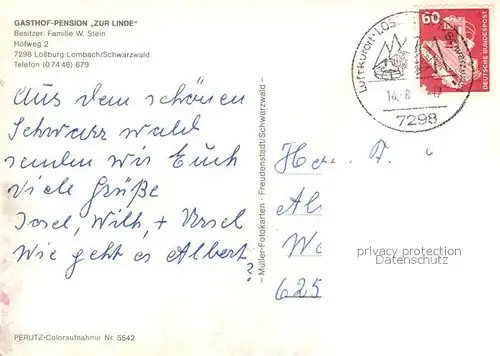 GASTHOF-PENSION „ZUR LINDE"
Besitzer: Familie W. Stein
Höfweg 2
7298 Loßburg-Lombach/Schwarzwald
Telefon (07446) 679
Aus dem schönen
Schwarzwald
senden wir Euch
viele Grüße
Josef, Wilh, + Ursel
Wie geht es Albert?
PERUTZ-Coloraufnahme Nr. 5542
– Müller-Fotokarten - Freudenstadt/Schwarzwald –
60
DEUTSCHE BUNDESPOST
Luftkurort · LOS
14.-8
7298
Al
We
625
privacy protection
watermark